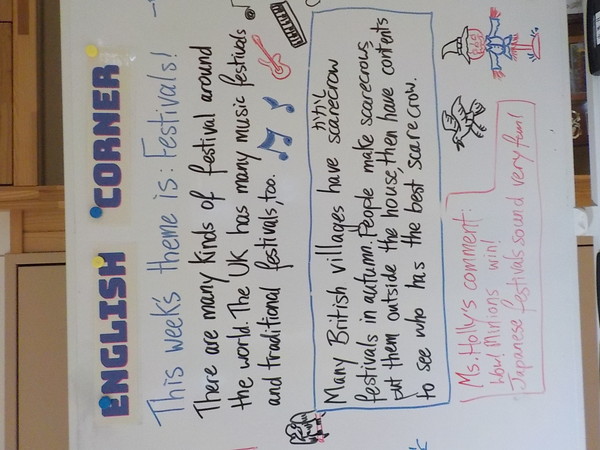 ENGLISH CORNER
This week's theme is: Festivals!
There are many kinds of festival around
the world. The UK has many music festivals
and traditional festivals, too.
かかし
Many British villages have scarecrow
festivals in autumn. People make scarecrows,
put them outside the house, then have contents
to see who has the best scarecrow.
Ms. Holly's comment:
Wow! Minions win!
Japanese festivals sound very fun!